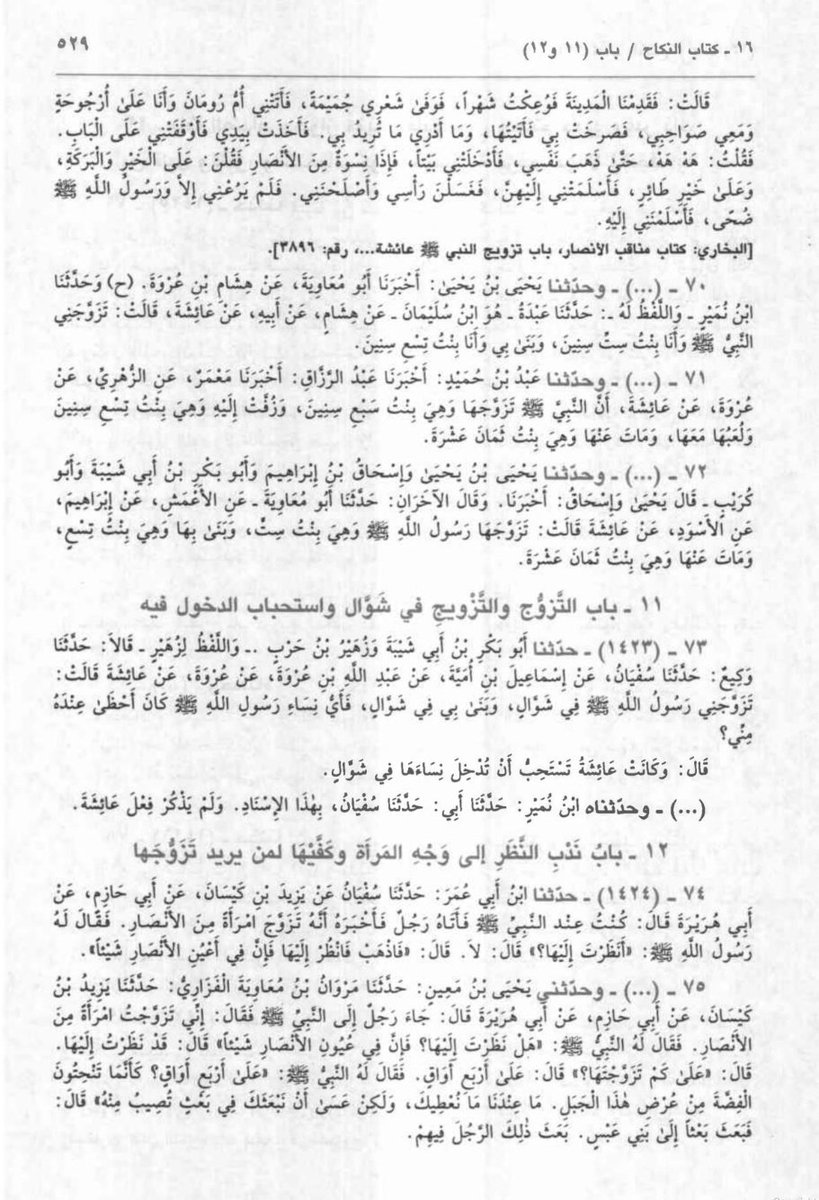 ١٦ ـ كتاب النكاح / باب (١١ و١٢) ٥٢٩
قَالَتْ: فَقَدِمْنَا الْمَدِينَةَ فَوُعِكْتُ شَهْراً، فَوَفَىٰ شَعْرِي جُمَيْمَةً، فَأَتَتْنِي أُمُّ رُومَانَ وَأَنَا عَلَىٰ أُرْجُوحَةٍ
وَمَعِي صَوَاحِبِي، فَصَرَخَتْ بِي فَأَتَيْتُهَا، وَمَا أَدْرِي مَا تُرِيدُ بِي. فَأَخَذَتْ بِيَدِي فَأَوْقَفَتْنِي عَلَى الْبَابِ.
فَقُلْتُ: هَهْ هَهْ، حَتَّىٰ ذَهَبَ نَفَسِي، فَأَدْخَلَتْنِي بَيْتاً، فَإِذَا نِسْوَةٌ مِنَ الأَنْصَارِ فَقُلْنَ: عَلَى الْخَيْرِ وَالْبَرَكَةِ،
وَعَلَىٰ خَيْرِ طَائِرٍ، فَأَسْلَمَتْنِي إِلَيْهِنَّ، فَغَسَلْنَ رَأْسِي وَأَصْلَحْنَنِي. فَلَمْ يَرُعْنِي إِلاَّ وَرَسُولُ اللَّهِ ﷺ
ضُحًى، فَأَسْلَمْنَنِي إِلَيْهِ.
[البخاري: كتاب مناقب الأنصار، باب تزويج النبي ﷺ عائشة...، رقم: ٣٨٩٦].
٧٠ ـ (...) ـ وحدّثنا يَحْيَى بْنُ يَحْيَىٰ: أَخْبَرَنَا أَبُو مُعَاوِيَةَ، عَنْ هِشَامِ بْنِ عُرْوَةَ. (ح) وَحَدَّثَنَا
ابْنُ نُمَيْرٍ ـ وَاللَّفْظُ لَهُ ـ: حَدَّثَنَا عَبْدَةُ ـ هُوَ ابْنُ سُلَيْمَانَ ـ عَنْ هِشَامٍ، عَنْ أَبِيهِ، عَنْ عَائِشَةَ، قَالَتْ: تَزَوَّجَنِي
النَّبِيُّ ﷺ وَأَنَا بِنْتُ سِتِّ سِنِينَ، وَبَنَىٰ بِي وَأَنَا بِنْتُ تِسْعِ سِنِينَ.
٧١ ـ (...) ـ وحدّثنا عَبْدُ بْنُ حُمَيْدٍ: أَخْبَرَنَا عَبْدُ الرَّزَّاقِ: أَخْبَرَنَا مَعْمَرٌ، عَنِ الزُّهْرِيِّ، عَنْ
عُرْوَةَ، عَنْ عَائِشَةَ، أَنَّ النَّبِيَّ ﷺ تَزَوَّجَهَا وَهِيَ بِنْتُ سَبْعِ سِنِينَ، وَزُفَّتْ إِلَيْهِ وَهِيَ بِنْتُ تِسْعِ سِنِينَ
وَلُعَبُهَا مَعَهَا، وَمَاتَ عَنْهَا وَهِيَ بِنْتُ ثَمَانَ عَشْرَةَ.
٧٢ ـ (...) ـ وحدّثنا يَحْيَى بْنُ يَحْيَىٰ وَإِسْحَاقُ بْنُ إِبْرَاهِيمَ وَأَبُو بَكْرِ بْنُ أَبِي شَيْبَةَ وَأَبُو
كُرَيْبٍ ـ قَالَ يَحْيَىٰ وَإِسْحَاقُ: أَخْبَرَنَا. وَقَالَ الآخَرَانِ: حَدَّثَنَا أَبُو مُعَاوِيَةَ ـ عَنِ الأَعْمَشِ، عَنْ إِبْرَاهِيمَ،
عَنِ الأَسْوَدِ، عَنْ عَائِشَةَ قَالَتْ: تَزَوَّجَهَا رَسُولُ اللَّهِ ﷺ وَهِيَ بِنْتُ سِتٍّ، وَبَنَىٰ بِهَا وَهِيَ بِنْتُ تِسْعٍ،
وَمَاتَ عَنْهَا وَهِيَ بِنْتُ ثَمَانَ عَشْرَةَ.
١١ ـ باب التَّزوُّجِ والتَّزْوِيجِ في شَوَّال واستحباب الدخول فيه
٧٣ ـ (١٤٢٣) ـ حدّثنا أَبُو بَكْرِ بْنُ أَبِي شَيْبَةَ وَزُهَيْرُ بْنُ حَرْبٍ .ـ وَاللَّفْظُ لِزُهَيْرٍ ـ قَالاَ: حَدَّثَنَا
وَكِيعٌ: حَدَّثَنَا سُفْيَانُ، عَنْ إِسْمَاعِيلَ بْنِ أُمَيَّةَ، عَنْ عَبْدِ اللَّهِ بْنِ عُرْوَةَ، عَنْ عُرْوَةَ، عَنْ عَائِشَةَ قَالَتْ:
تَزَوَّجَنِي رَسُولُ اللَّهِ ﷺ فِي شَوَّالٍ، وَبَنَىٰ بِي فِي شَوَّالٍ، فَأَيُّ نِسَاءِ رَسُولِ اللَّهِ ﷺ كَانَ أَحْظَىٰ عِنْدَهُ
مِنِّي؟
قَالَ: وَكَانَتْ عَائِشَةُ تَسْتَحِبُّ أَنْ تُدْخِلَ نِسَاءَهَا فِي شَوَّالٍ.
(...) ـ وحدّثناه ابْنُ نُمَيْرٍ: حَدَّثَنَا أَبِي: حَدَّثَنَا سُفْيَانُ، بِهٰذَا الإِسْنَادِ. وَلَمْ يَذْكُرْ فِعْلَ عَائِشَةَ.
١٢ ـ بابُ نَدْبِ النَّظَرِ إلى وَجْهِ المَرأة وكفَّيْهَا لمن يريد تَزَوُّجَها
٧٤ ـ (١٤٢٤) ـ حدّثنا ابْنُ أَبِي عُمَرَ: حَدَّثَنَا سُفْيَانُ عَنْ يَزِيدَ بْنِ كَيْسَانَ، عَنْ أَبِي حَازِمٍ، عَنْ
أَبِي هُرَيْرَةَ قَالَ: كُنْتُ عِنْدَ النَّبِيِّ ﷺ فَأَتَاهُ رَجُلٌ فَأَخْبَرَهُ أَنَّهُ تَزَوَّجَ امْرَأَةً مِنَ الأَنْصَارِ. فَقَالَ لَهُ
رَسُولُ اللَّهِ ﷺ: «أَنَظَرْتَ إِلَيْهَا؟» قَالَ: لاَ. قَالَ: «فَاذْهَبْ فَانْظُرْ إِلَيْهَا فَإِنَّ فِي أَعْيُنِ الأَنْصَارِ شَيْئاً».
٧٥ ـ (...) ـ وحدّثني يَحْيَى بْنُ مَعِينٍ: حَدَّثَنَا مَرْوَانُ بْنُ مُعَاوِيَةَ الْفَزَارِيُّ: حَدَّثَنَا يَزِيدُ بْنُ
كَيْسَانَ، عَنْ أَبِي حَازِمٍ، عَنْ أَبِي هُرَيْرَةَ قَالَ: جَاءَ رَجُلٌ إِلَى النَّبِيِّ ﷺ فَقَالَ: إِنِّي تَزَوَّجْتُ امْرَأَةً مِنَ
الأَنْصَارِ. فَقَالَ لَهُ النَّبِيُّ ﷺ: «هَلْ نَظَرْتَ إِلَيْهَا؟ فَإِنَّ فِي عُيُونِ الأَنْصَارِ شَيْئاً» قَالَ: قَدْ نَظَرْتُ إِلَيْهَا.
قَالَ: «عَلَىٰ كَمْ تَزَوَّجْتَهَا؟» قَالَ: عَلَىٰ أَرْبَعِ أَوَاقٍ. فَقَالَ لَهُ النَّبِيُّ ﷺ: «عَلَىٰ أَرْبَعِ أَوَاقٍ؟ كَأَنَّمَا تَنْحِتُونَ
الْفِضَّةَ مِنْ عُرْضِ هٰذَا الْجَبَلِ. مَا عِنْدَنَا مَا نُعْطِيكَ، وَلٰكِنْ عَسَىٰ أَنْ نَبْعَثَكَ فِي بَعْثٍ تُصِيبُ مِنْهُ» قَالَ:
فَبَعَثَ بَعْثاً إِلَىٰ بَنِي عَبْسٍ. بَعَثَ ذٰلِكَ الرَّجُلَ فِيهِمْ.